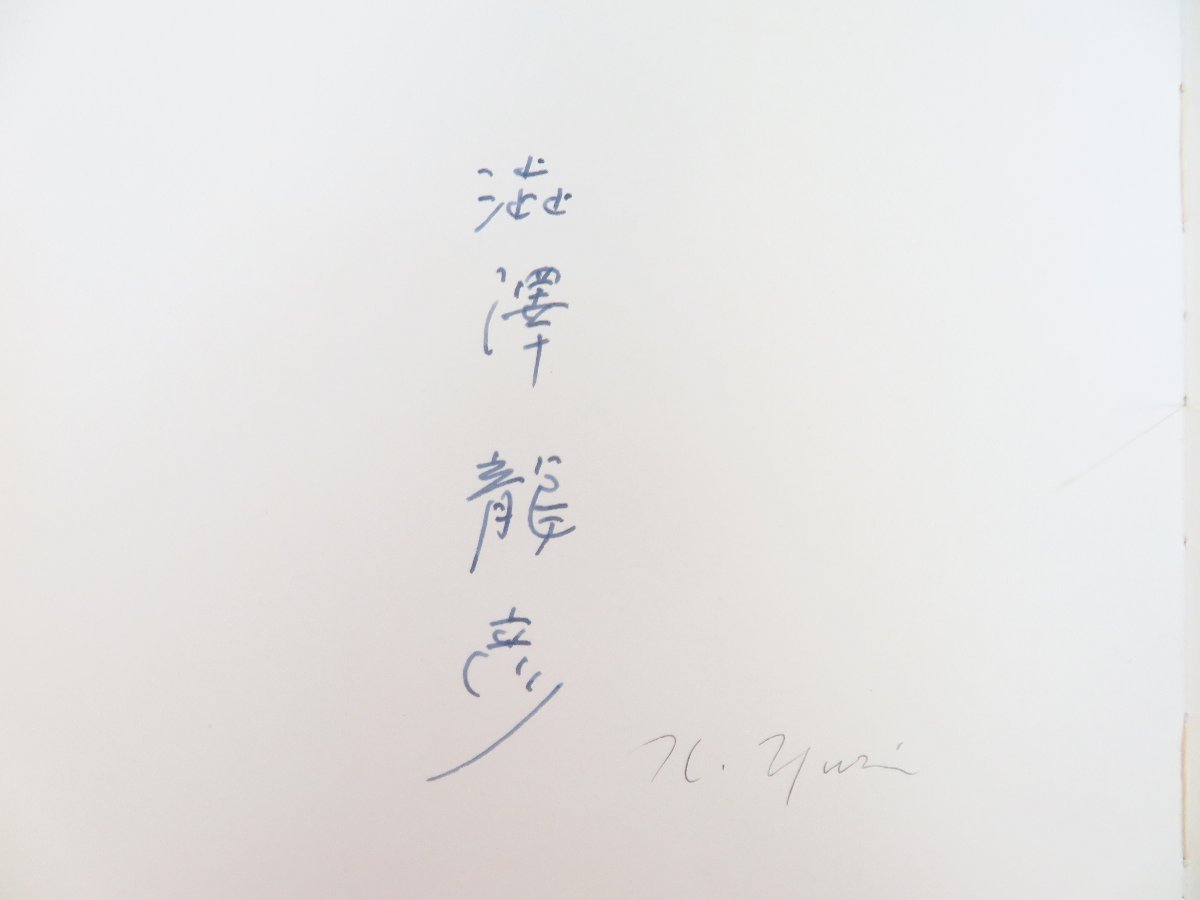 澁澤龍彦
K. Yuri